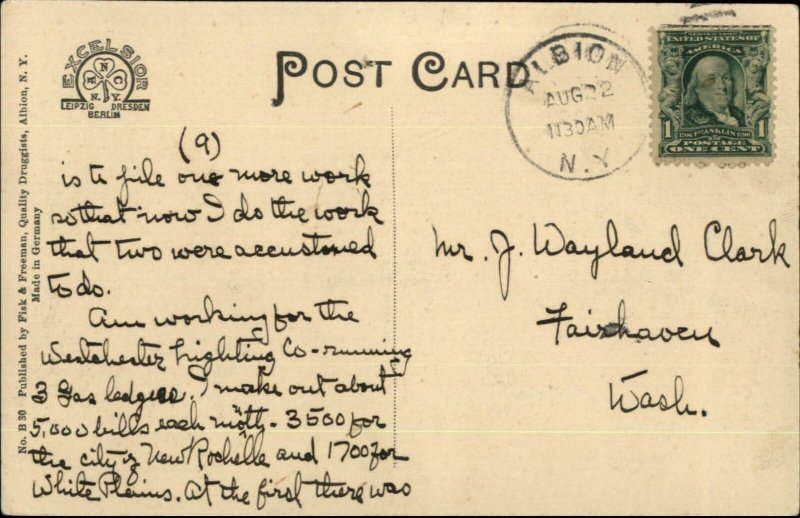 EXCELSIOR
H N C
N.Y.
LEIPZIG DRESDEN
BERLIN
POST CARD
ALBION
AUG 22
1130AM
N.Y.
UNITED STATES OF
AMERICA
1 1706 FRANKLIN 1790 1
POSTAGE
ONE CENT
No. B 30 Published by Fisk & Freeman, Quality Druggists, Albion, N. Y.
Made in Germany
(9)
is to pile one more work
so that now I do the work
that two were accustomed
to do.
Am working for the
Westchester Lighting Co - running
3 Gas ledgers. I make out about
5,000 bills each month - 3500 for
the city of New Rochelle and 1700 for
White Plains. At the first there was
Mr. J. Wayland Clark
Fairhaven
Wash.